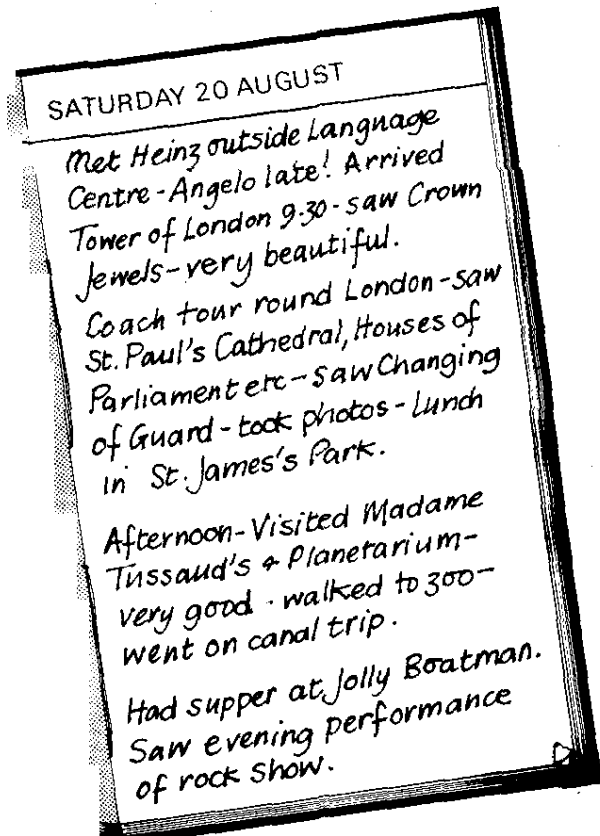 SATURDAY 20 AUGUST
Met Heinz outside Language
Centre - Angelo late! Arrived
Tower of London 9.30 - saw Crown
Jewels - very beautiful.
Coach tour round London - saw
St. Paul's Cathedral, Houses of
Parliament etc - saw Changing
of Guard - took photos - lunch
in St. James's Park.
Afternoon - Visited Madame
Tussaud's & Planetarium -
very good. walked to zoo -
went on canal trip.
Had supper at Jolly Boatman.
Saw evening performance
of rock show.